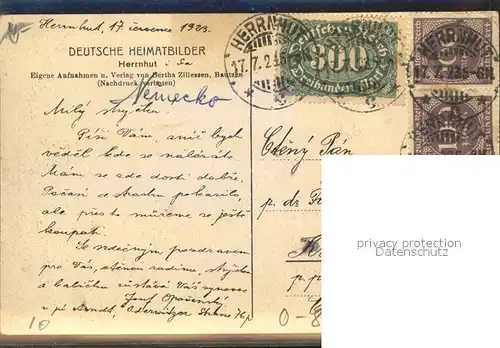 Herrnhut, 17. července 1923.
DEUTSCHE HEIMATBILDER
Herrnhut i. Sa
Eigene Aufnahmen u. Verlag von Bertha Zillessen, Bautzen
(Nachdruck verboten)
Německo
HERRNHUT
17.7.23.6
Deutsches Reich
300
Dreihundert Mark
HERRNHUT
17.7.23.6
Milý strýčku.
Píši Vám, aniž bych
věděl kde se nalézáte.
Mám se zde dosti dobře.
Počasí se trochu pokazilo,
ale přes to můžeme se ještě
koupati.
Se srdečným pozdravem
pro Vás, ctěnou rodinu, strýčka
a babičku zůstává Váš synovec
Josef
Ctěný Pán
p. dr
privacy protection
Datenschutz
10